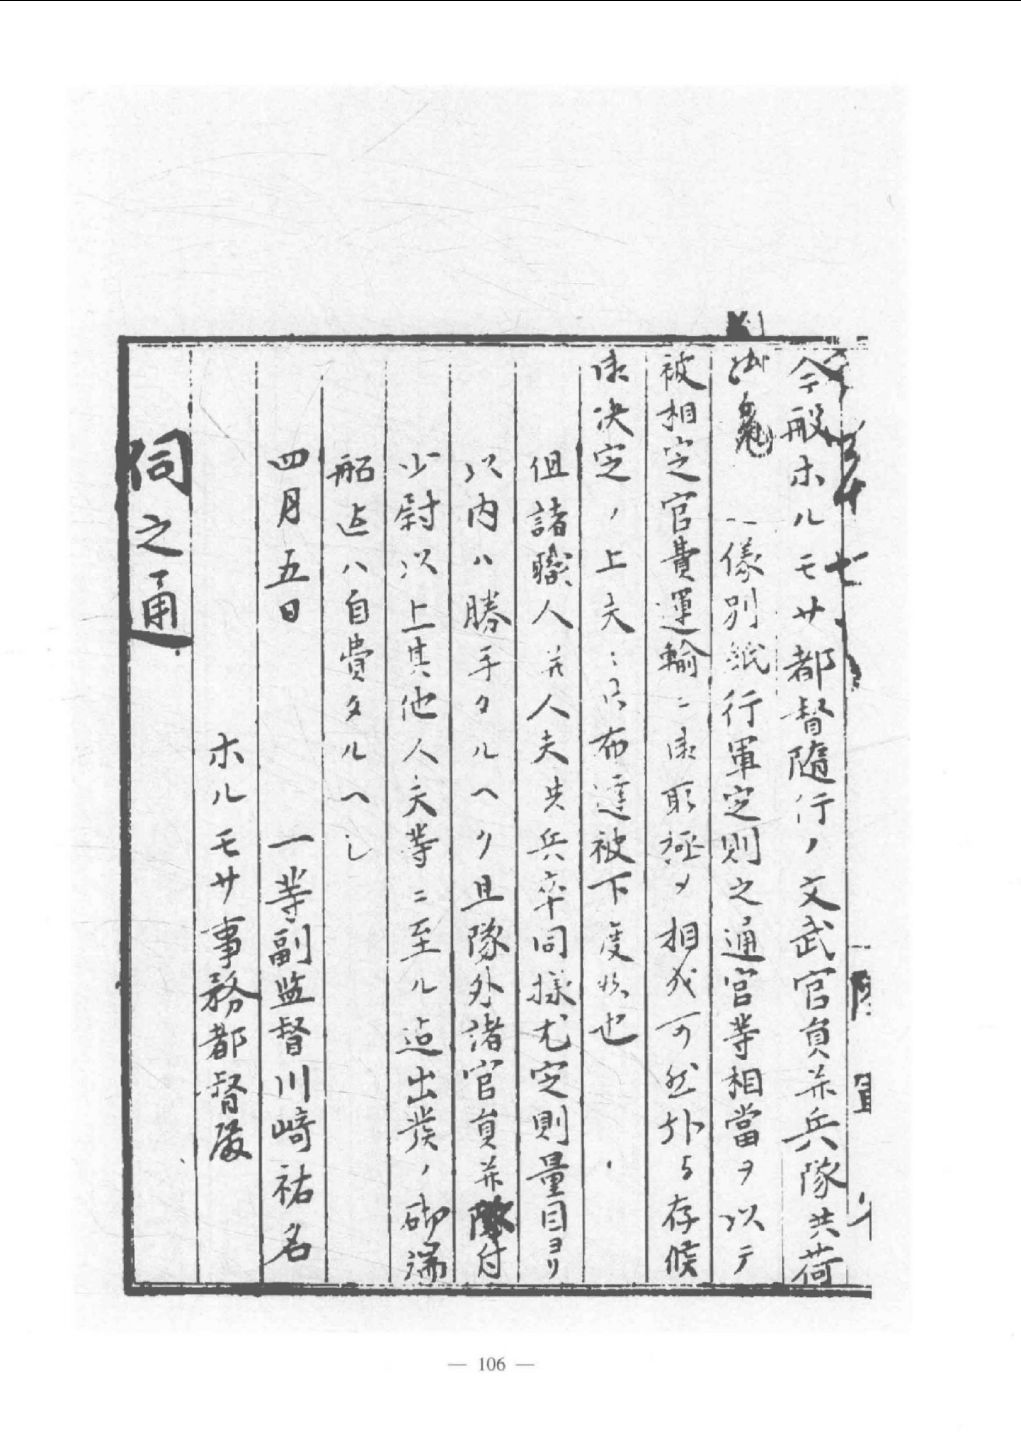 今般ホルモサ都督隨行ノ文武官員并兵隊共荷
儀別紙行軍定則之通官等相當ヲ以テ
被相定官費運輸ニ御取極メ相成可然外ニ存候
御決定ノ上夫ニ布達被下度候也
但諸職人并人夫共兵卒同様尤定則量目ヨリ
以内ハ勝手タルヘク且隊外諸官員并付
少尉以上其他人夫等ニ至ル迠出発ノ砌端
船迠ハ自費タルヘシ
四月五日
一等副監督川﨑祐名
ホルモサ事務都督殿
伺之通
— 106 —